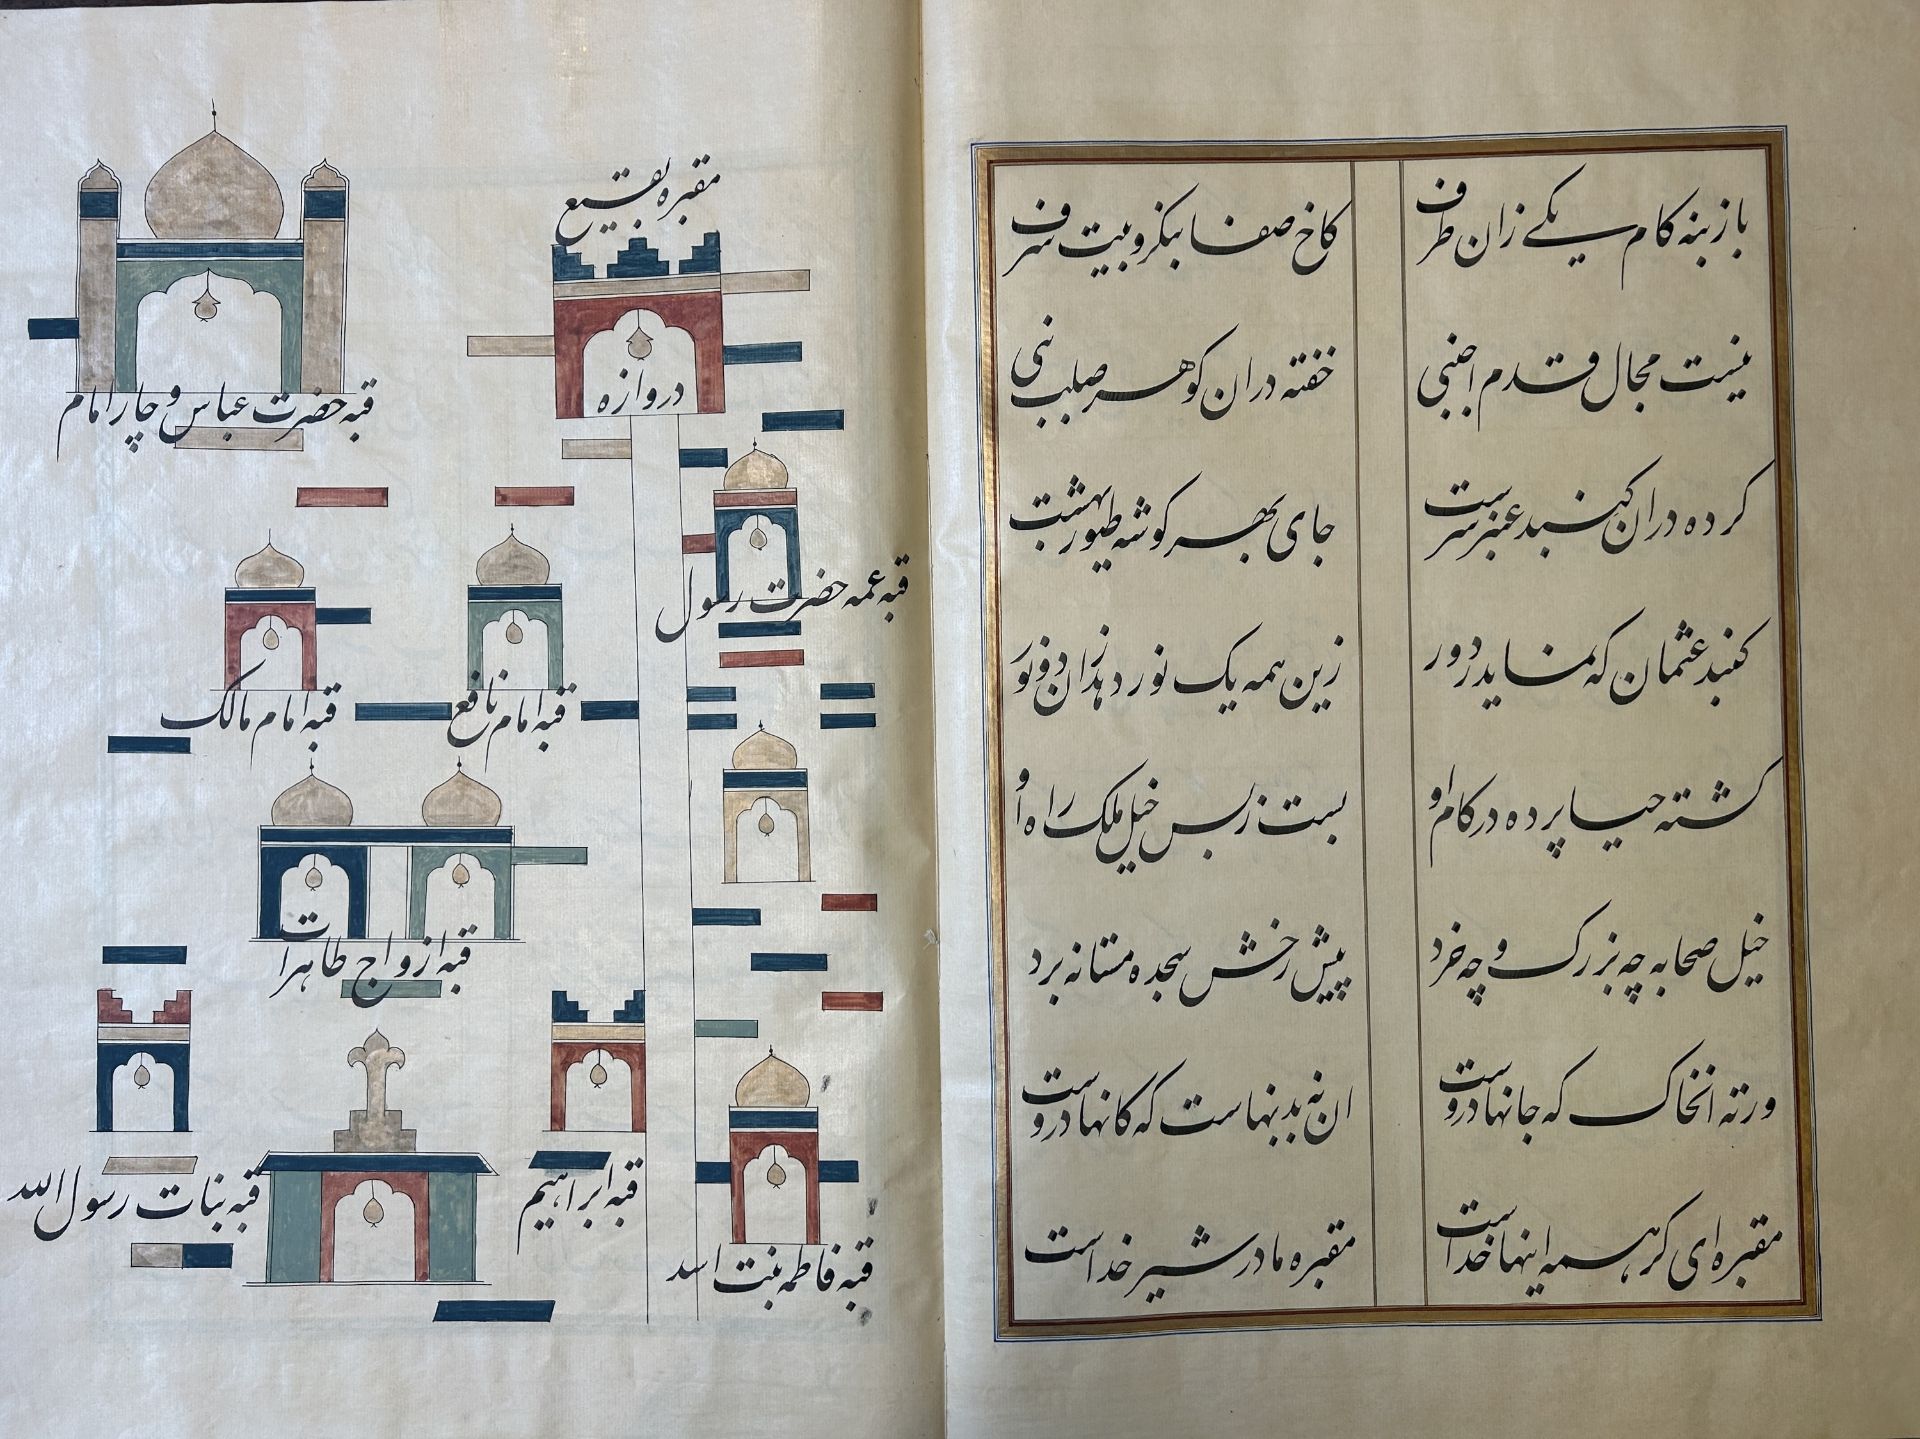 باز بنه کام یکے زان طرف
کاخ صفا بنکر و بیت شرف
نیست مجال قدم اجنبی
خفته دران کوهر صلب نبی
کرده دران کنبد عنبر سرشت
جای بهر کوشه طیور بهشت
کنبد عثمان که نماید ز دور
زین همه یک نور دهد زان وفور
کشته حیا پرده در کام او
بست ز بس خیل ملک راه او
خیل صحابه چه بزرک و چه خرد
پیش رخش سجده مستانه برد
ورته انخاک که جانها دروست
ان نه بدنهاست که کانها دروست
مقبره ای کر همه اینها خداست
مقبره مادر شیر خداست
مقبره بقیع
دروازه
قبه حضرت عباس و چار امام
قبه عمه حضرت رسول
قبه امام نافع
قبه امام مالک
قبه ازواج طاهرات
قبه ابراهیم
قبه بنات رسول الله
قبه فاطمه بنت اسد